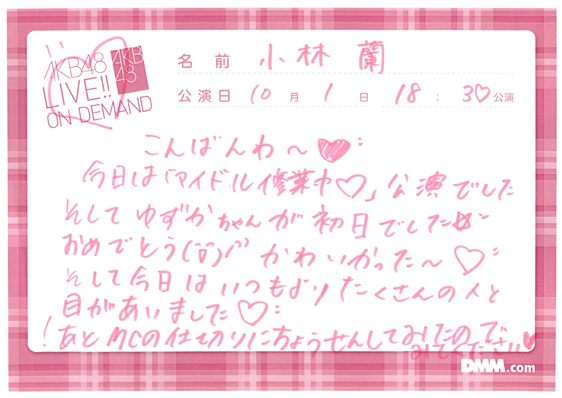 AKB48
LIVE!!
ON DEMAND
AKB
48
名前 小林 蘭
公演日 10月1日 18:30公演
こんばんわ~♥
今日は「マイドル修業中♡」公演でした
そして ゆずかちゃんが初日でした☆
おめでとう(ö)/ かわいかった~♡
そして今日は いつもより たくさんの人と
目があいました♡
!あとMCの仕切りにちょうせんしてみたので
みてください!!♥
DMM.com